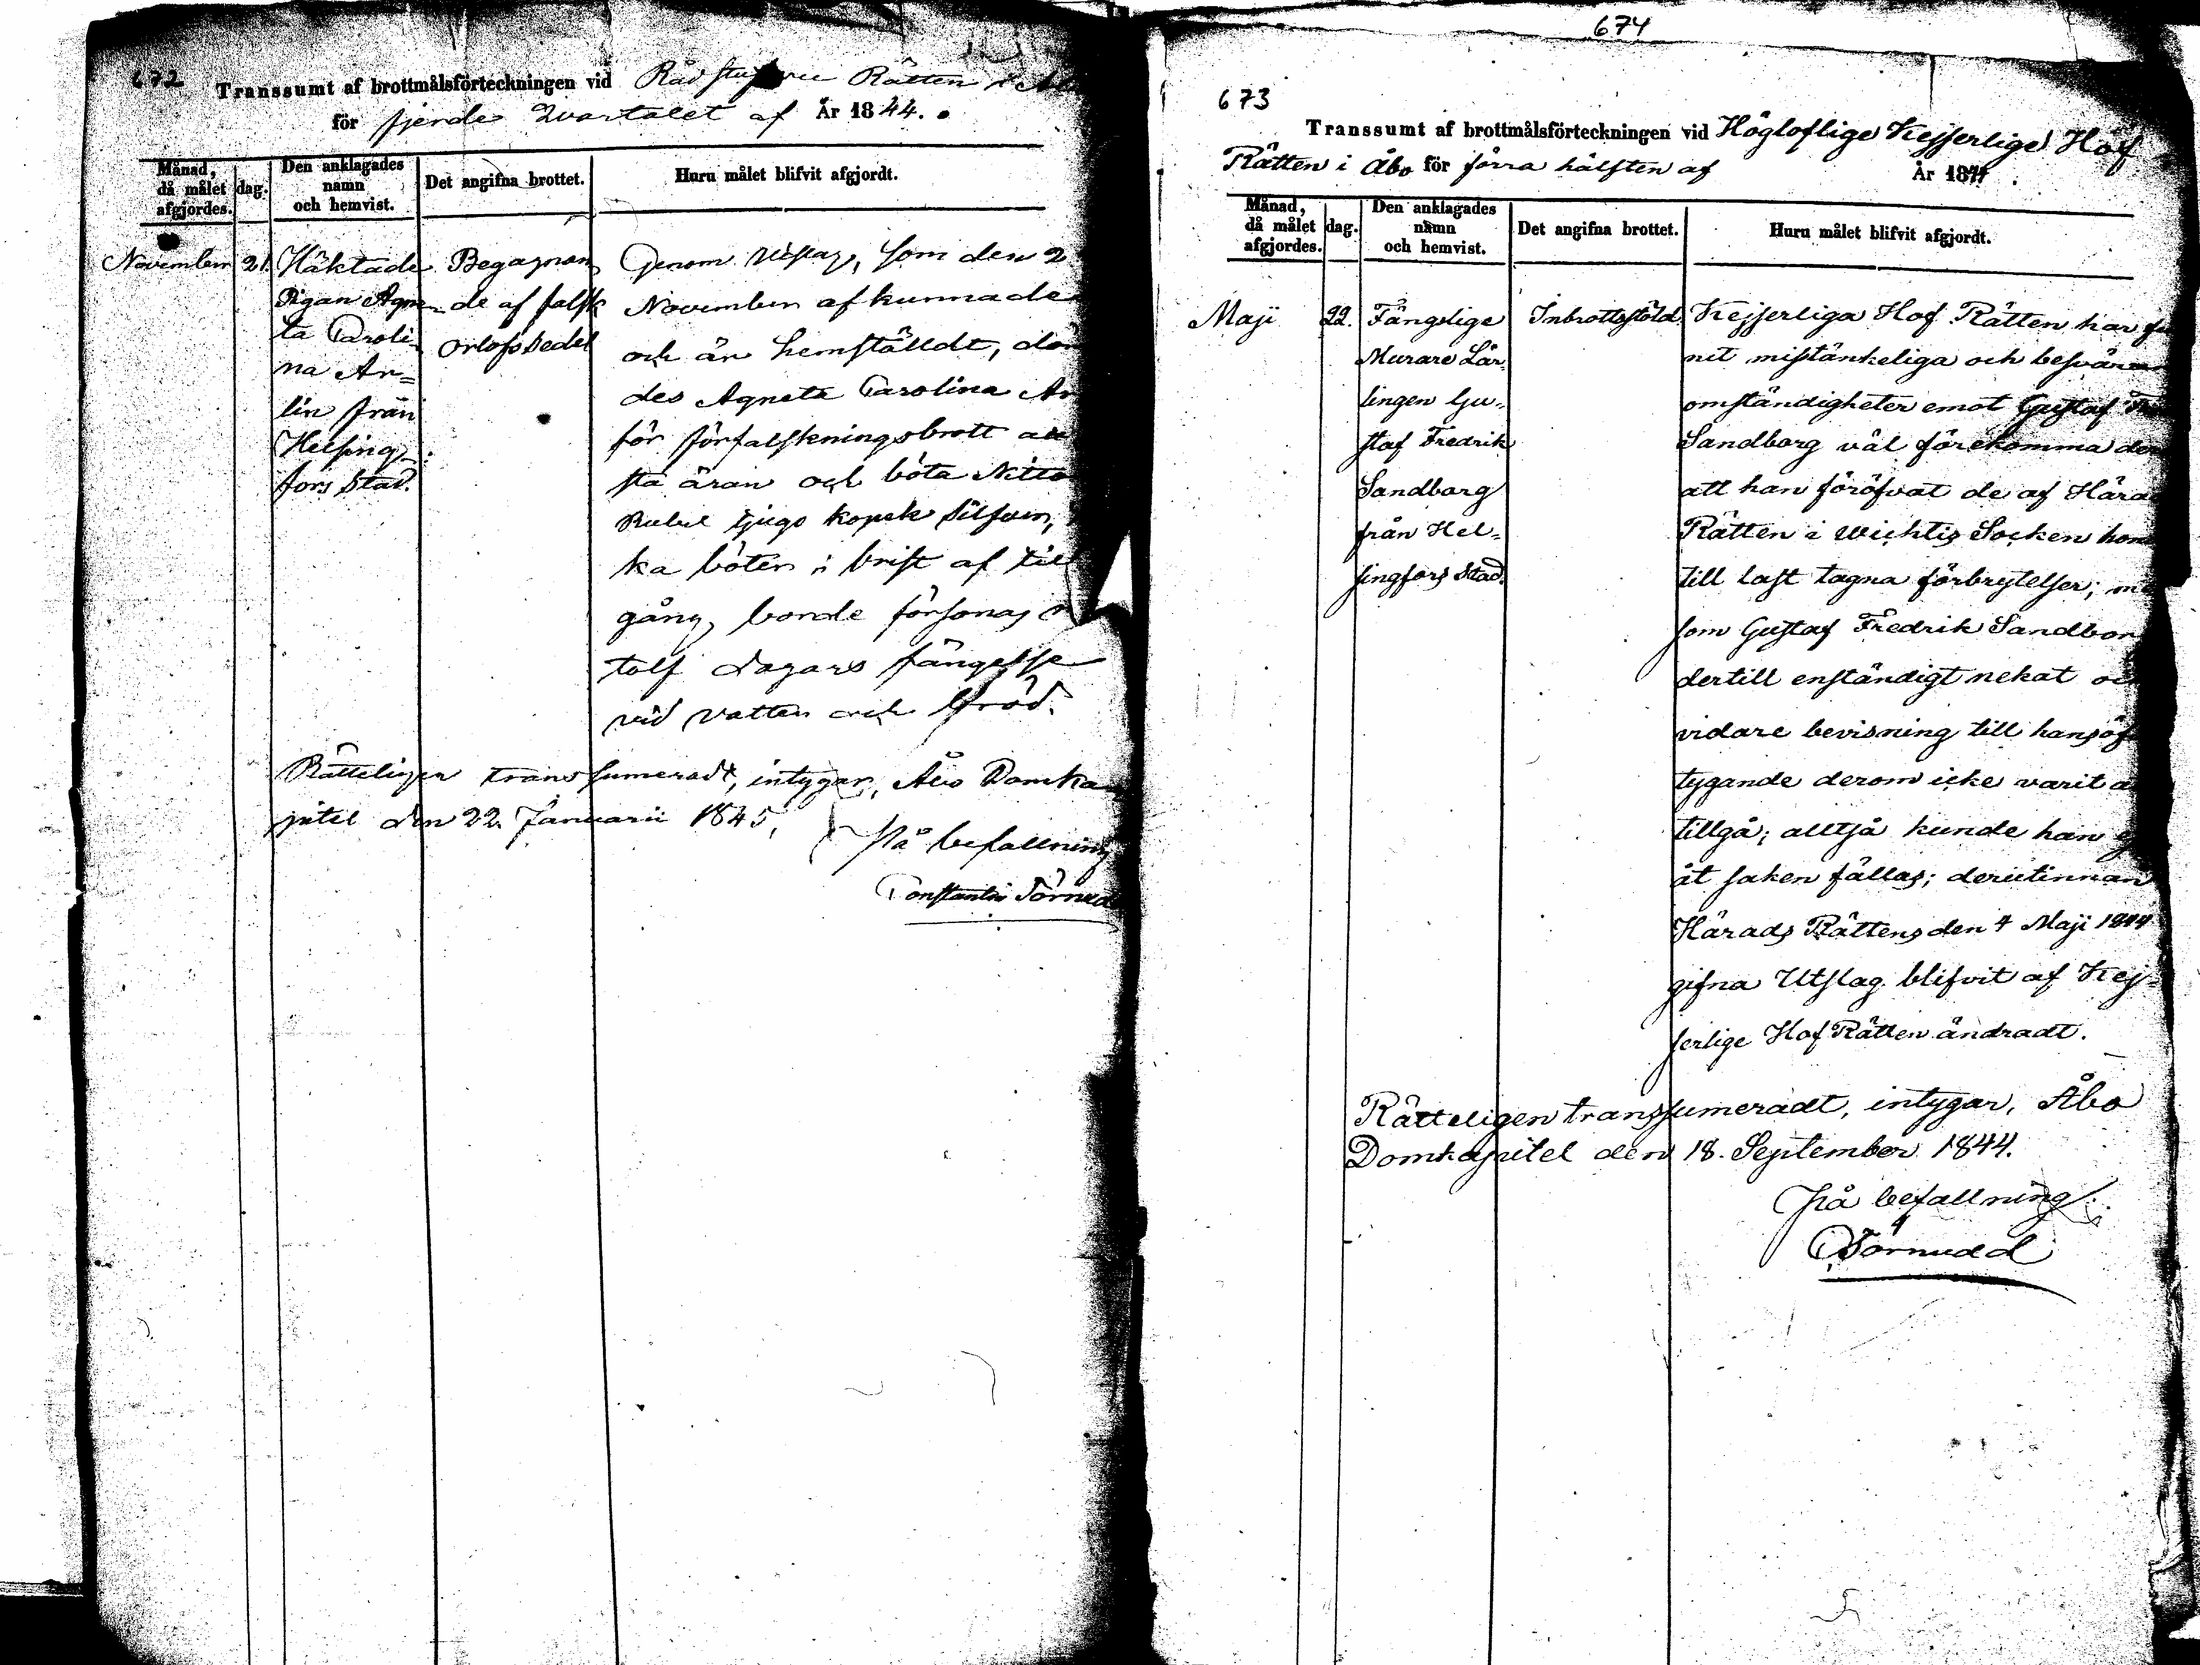 672
Transsumt af brottmålsförteckningen vid Rådstufvu Rätten i
för fjerde Qvartalet af År 1844.
Månad, då målet afgjordes.
dag.
Den anklagades namn och hemvist.
Det angifna brottet.
Huru målet blifvit afgjordt.
November
21.
Häktade
Pigan Agne-
ta Caroli-
na Ar=
lin från
Helsing-
fors Stad.
Begagnan
de af falsk
Orlofssedel
Genom Utslag, som den 2
November afkunnades
och är hemställdt, döm
des Agneta Carolina Ar
för förfalskningsbrott
sta äran och böta Nitto
Rubel tjugo kopek Silfver,
ka böter i brist af till
gång, borde försonas
tolf dagars fängelse
vid vatten och bröd.
Rätteligen transsumeradt, intygar, Åbo Domka
pitel den 22 Januarii 1845,
På befallning
Constantin Törnudd
674
673
Transsumt af brottmålsförteckningen vid Högloflige Kejserlige Hof
Rätten i Åbo för förra hälften af År 1844
Månad, då målet afgjordes.
dag.
Den anklagades namn och hemvist.
Det angifna brottet.
Huru målet blifvit afgjordt.
Maji
22.
Fängslige
Murare Lär-
lingen Gu-
staf Fredrik
Sandborg
från Hel-
singfors Stad.
Inbrottsstöld.
Kejserliga Hof Rätten har fun
nit misstänkeliga och besvära
omständigheter emot Gustaf Fre
Sandborg väl förekomma der
att han föröfvat de af Härad
Rätten i Wichtis Socken hon
till last tagna förbrytelser; me
som Gustaf Fredrik Sandbor
dertill enständigt nekat och
vidare bevisning till hans öf
tygande derom icke varit a
tillgå; alltså kunde han ej
åt saken fällas; derutinnan
Härads Rättens den 4 Maji 1844
gifna Utslag blifvit af Kej-
serlige Hof Rätten ändradt.
Rätteligen transsumeradt, intygar, Åbo
Domkapitel den 18. September 1844.
På befallning
C Törnudd